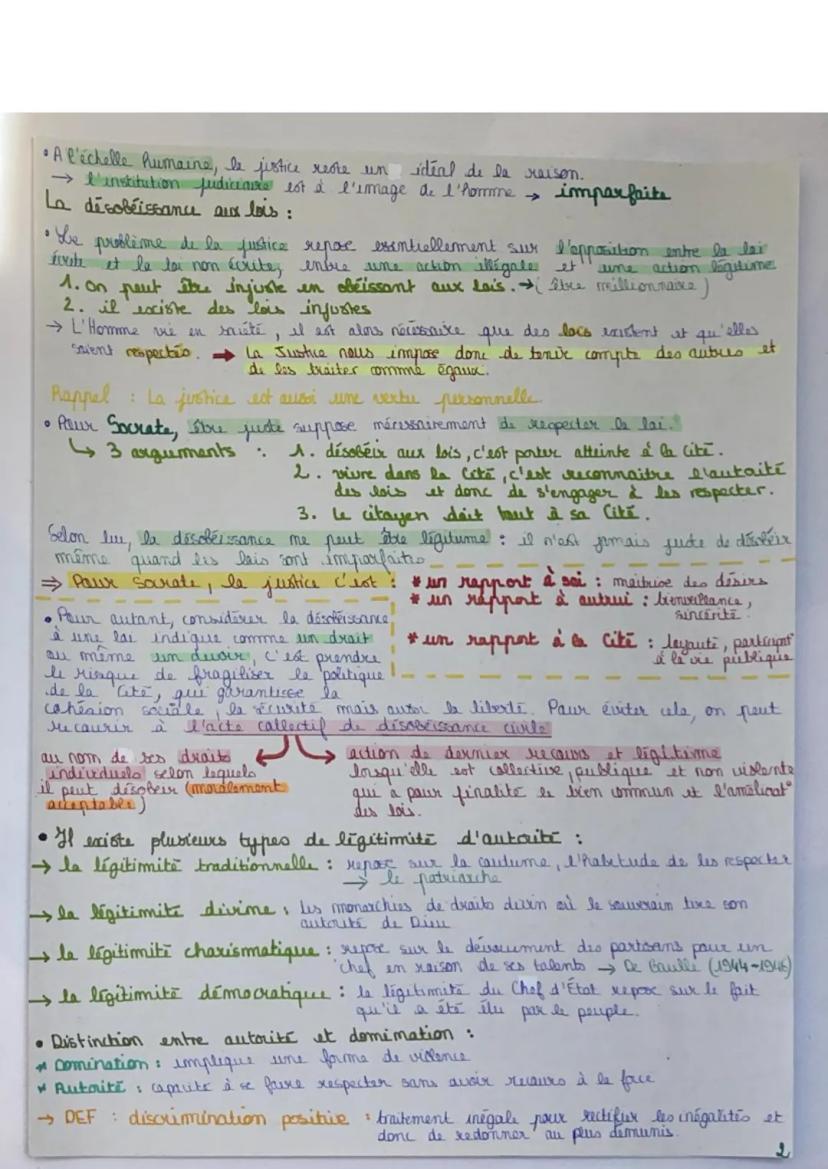 • A l'échelle humaine, la justice reste un idéal de la raison.
→ l'institution judiciaire est à l'image de l'homme → imparfaite
La désobéissance aux lois :
• Le problème de la justice repose essentiellement sur l'opposition entre la loi
écrite et la loi non écrite, entre une action illégale et une action légitime
1. On peut être injuste en obéissant aux lois. → (être millionnaire)
2. il existe des lois injustes
→ L'Homme vie en société, il est alors nécessaire que des lois existent et qu'elles
soient respectés. → La Justice nous impose donc de tenir compte des autres et
de les traiter comme égaux.
Rappel : La justice est aussi une vertu personnelle.
• Pour Socrate, être juste suppose nécessairement de respecter la loi.
↳ 3 arguments : 1. désobéir aux lois, c'est porter atteinte à la Cité.
2. vivre dans la Cité, c'est reconnaitre l'autorité
des lois et donc de s'engager à les respecter.
3. Le citoyen doit tout à sa Cité.
Selon lui, la désobéissance ne peut être légitime : il n'est jamais juste de désobéir
même quand les lois sont imparfaites
⇒ Pour Socrate, la justice c'est : * un rapport à soi : maitrise des désirs
* un rapport à autrui : bienveillance,
sincérité.
* un rapport à la Cité : loyauté, participat°
à la vie publique
• Pour autant, considérer la désobéissance
à une loi indique comme un droit
ou même un devoir, c'est prendre
le risque de fragiliser la politique
de la Cité, qui garantisse la
cohésion sociale, la sécurité mais aussi la liberté. Pour éviter cela, on peut
recourir à l'acte collectif de désobéissance civile
au nom de ses droits
individuels selon lequels
il peut désobeir (moralement
acceptable)
action de dernier recours et légitime
lorsqu'elle est collective, publique et non violente
qui a pour finalité le bien commun et l'améliorat°
des lois.
• Il existe plusieurs types de légitimité d'autorité :
→ la légitimité traditionnelle : repose sur la coutume, l'habitude de les respecter
→ le patriarche
→ la légitimité divine : les monarchies de droits divin où le souverain tire son
autorité de Dieu
→ la légitimité charismatique : repose sur le dévouement des partisans pour un
chef en raison de ses talents → De Gaulle (1944-1946)
→ la légitimité démocratique : la légitimité du Chef d'État repose sur le fait
qu'il a été élu par le peuple.
• Distinction entre autorité et domination :
* Domination : implique une forme de violence
* Autorité : capacité à se faire respecter sans avoir recours à la force
→ DEF : discrimination positive : traitement inégale pour rectifier les inégalités et
donc de redonner au plus démunis.
2